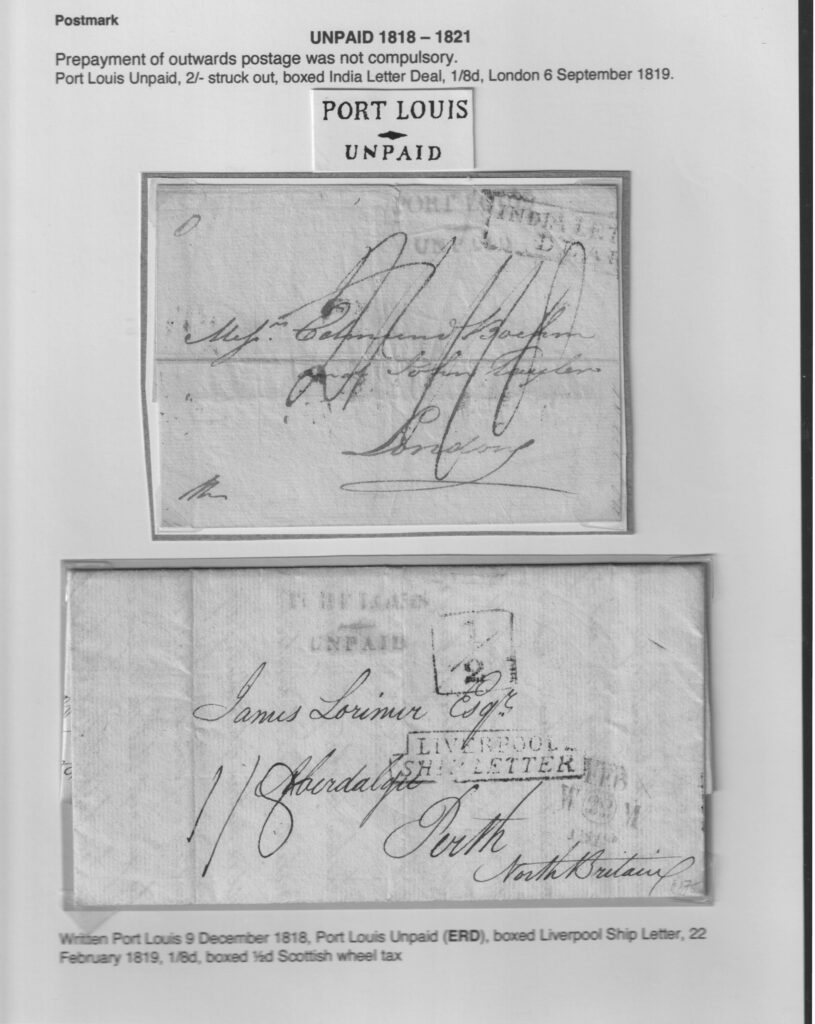 Postmark
UNPAID 1818 – 1821
Prepayment of outwards postage was not compulsory.
Port Louis Unpaid, 2/- struck out, boxed India Letter Deal, 1/8d, London 6 September 1819.
PORT LOUIS
UNPAID
PORT
UNPAID
INDIA LET
Messrs Edmund Boehm
and John Tayler
London
PORT LOUIS
UNPAID
1/2
James Lorimer Esqr
LIVERPOOL
SHIP LETTER
1/8 Aberdalgie
FEB
22
Perth
North Britain
Written Port Louis 9 December 1818, Port Louis Unpaid (ERD), boxed Liverpool Ship Letter, 22
February 1819, 1/8d, boxed ½d Scottish wheel tax